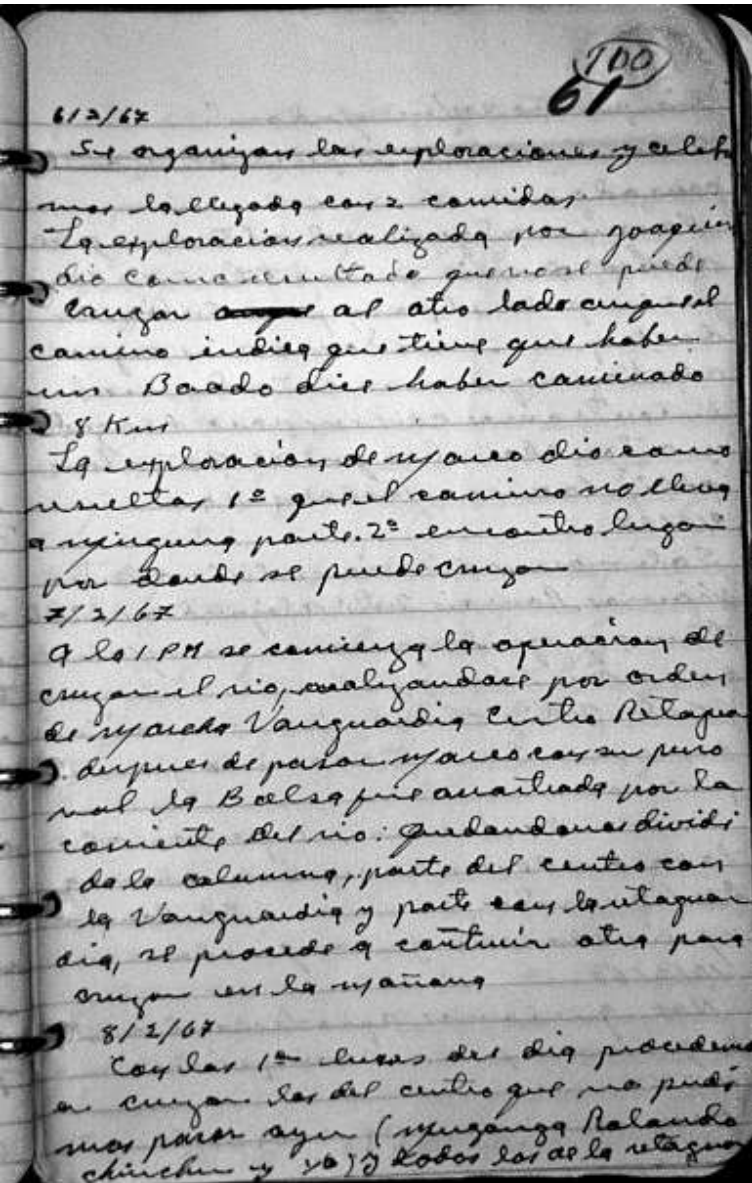 100
61
6/2/67
Se organizan las exploraciones y celeb
mos la llegada con 2 comidas
La exploracion realizada por Joaquin
dio como resultado que no se puede
cruzar al otro lado aunque el
camino indica que tiene que haber
un Baado dice haber caminado
8 Kms
La exploracion de Marco dio como
1º que el camino no lleva
a ninguna parte. 2º encontro lugar
por donde se puede cruzar
7/2/67
A la 1 PM se comienza la operacion de
cruzar el rio, realizandose por orden
de Marcha Vanguardia Centro Retagua
despues de pasar Marco con su perso
nal la Balsa fue arrastrada por la
corriente del rio: quedandonos dividi
da la columna, parte del centro con
la Vanguardia y parte con la retaguar
dia, se procede a otra para
cruzar en la mañana
8/2/67
Con las 1as luces del dia procedemo
a cruzar los del centro que no pudi
mos pasar ayer (Muganga Rolando
chinchu y yo) y todos los de la retaguar